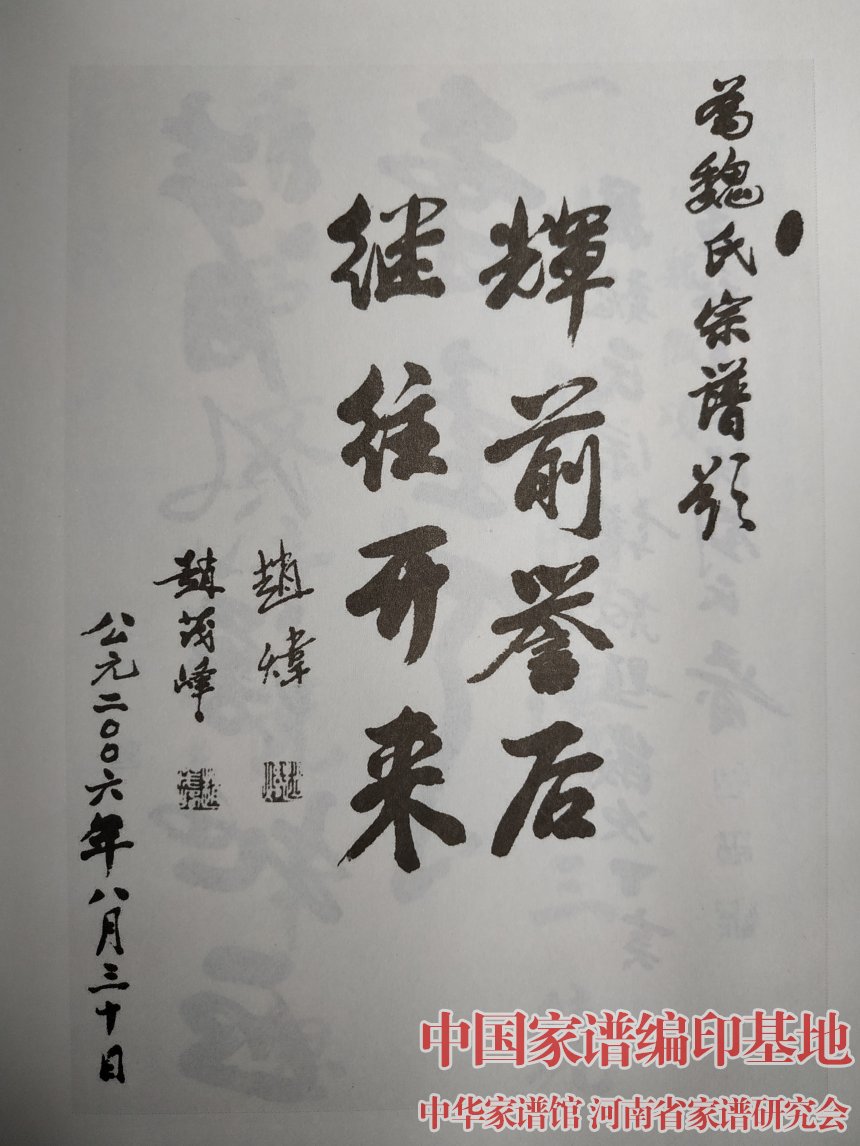 为魏氏宗谱题
輝前誉后
继往开来
趙煒
趙茂峰
公元二〇〇六年八月三十日
中国家谱编印基地
中华家谱馆 河南省家谱研究会